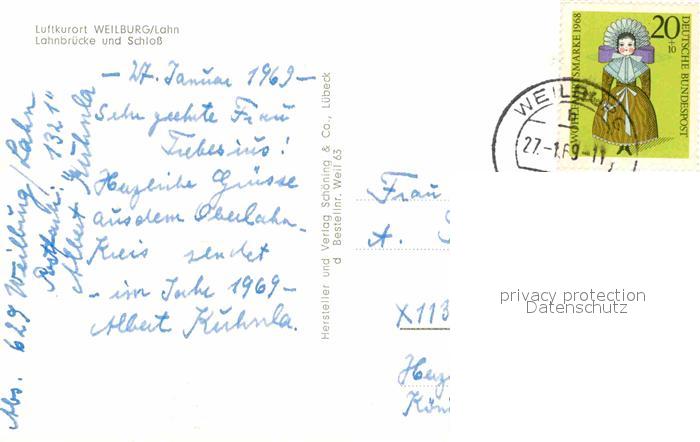 Luftkurort WEILBURG/Lahn
Lahnbrücke und Schloß
- 27. Januar 1969 -
Sehr geehrte Frau
Herzliche Grüsse
aus dem Oberlahn-
Kreis sendet
- im Jahr 1969 -
Albert Kuhnla.
Abs. 629 Weilburg/Lahn
Postfach: "1321"
Albert Kuhnla
Hersteller und Verlag Schöning & Co., Lübeck
d Bestellnr. Weil 63
WOHLFAHRTSMARKE 1968
20
+10
DEUTSCHE BUNDESPOST
WEILBURG
27.-1.69-11
Frau
A.
X113
privacy protection
Datenschutz